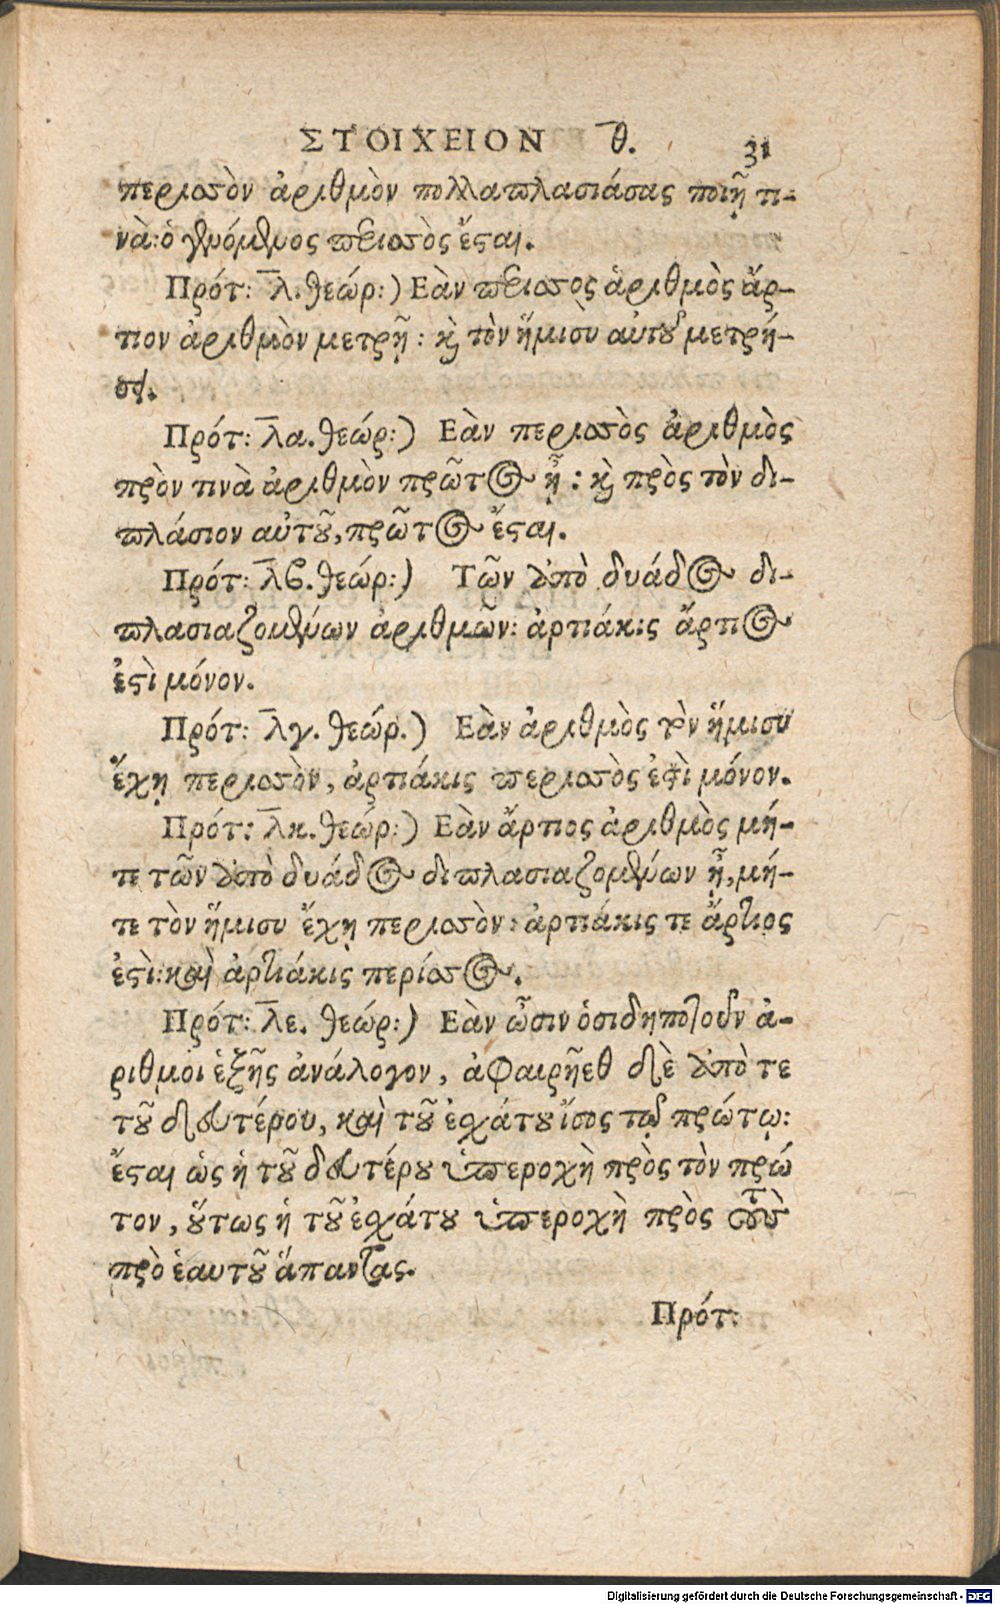 ΣΤΟΙΧΕΙΟΝ θ. 31
περισσὸν ἀριθμὸν πολλαπλασιάσας ποιῇ τι-
νὰ: ὁ γενόμενος περισσὸς ἔσται.
Πρότ: λ. θεώρ:) Εὰν περισσος ἀριθμὸς ἄρ-
τιον ἀριθμὸν μετρῇ: καὶ τὸν ἥμισὺ αὐτοῦ μετρή-
σει.
Πρότ: λα. θεώρ:) Εὰν περισσὸς ἀριθμὸς
πρὸν τινὰ ἀριθμὸν πρῶτος ᾖ: καὶ πρὸς τὸν δι-
πλάσιον αὐτοῦ, πρῶτος ἔσται.
Πρότ: λβ. θεώρ:) Τῶν ἀπὸ δυάδος δι-
πλασιαζομένων ἀριθμῶν: ἀρτιάκις ἄρτιος
ἐστὶ μόνον.
Πρότ: λγ. θεώρ.) Εὰν ἀριθμὸς τὸν ἥμισυ
ἔχῃ περισσὸν, ἀρτιάκις περισσὸς ἐστὶ μόνον.
Πρότ: λκ. θεώρ:) Εὰν ἄρτιος ἀριθμὸς μή-
τε τῶν ἀπὸ δυάδος διπλασιαζομένων ᾖ, μή-
τε τὸν ἥμισυ ἔχῃ περισσὸν: ἀρτιάκις τε ἄρτιος
ἐστὶ: καὶ ἀρτιάκις περίσσος.
Πρότ: λε. θεώρ:) Εὰν ὦσιν ὁσιδηποτοῦν ἀ-
ριθμοὶ ἑξῆς ἀνάλογον, ἀφαιρῆεθ δὲ ἀπὸ τε
τοῦ δευτέρου, καὶ τοῦ ἐσχάτου ἴσος τῷ πρώτῳ:
ἔσται ὡς ἡ τοῦ δευτέρου ὑπεροχὴ πρὸς τὸν πρώ
τον, οὕτως ἡ τοῦ ἐσχάτου ὑπεροχὴ πρὸς τοὺς
πρὸ ἑαυτοῦ ἅπαντας.
Πρότ:
Digitalisierung gefördert durch die Deutsche Forschungsgemeinschaft - DFG